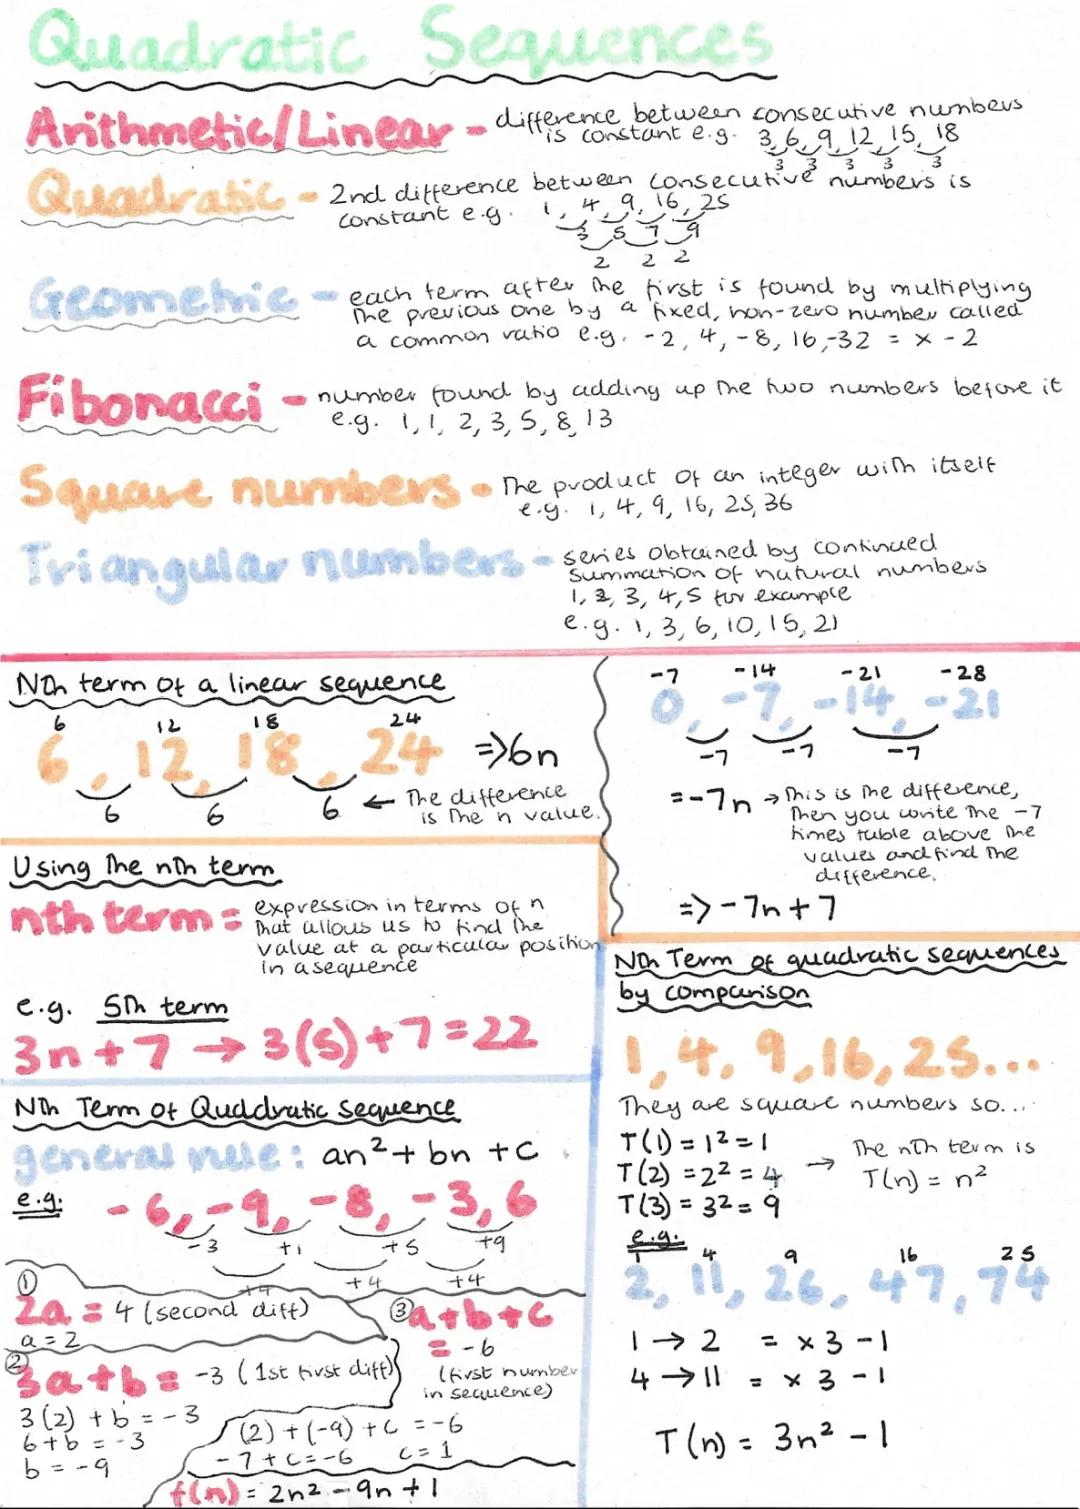 Quadratic Sequences
Arithmetic/Linear - difference between consecutive numbers
is constant e.g. 3, 6, 9, 12, 15, 18
3 3 3 3 3
Quadratic - 2nd difference between consecutive numbers is
constant e.g. 1, 4, 9, 16, 25
3 5 7 9
2 2 2
Geometric - each term after the first is found by multiplying
the previous one by a fixed, non-zero number called
a common ratio e.g. -2, 4, -8, 16, -32 = x - 2
Fibonacci - number found by adding up the two numbers before it
e.g. 1, 1, 2, 3, 5, 8, 13
Square numbers - The product of an integer with itself
e.g. 1, 4, 9, 16, 25, 36
Triangular numbers - series obtained by continued
summation of natural numbers
1, 2, 3, 4, 5 for example
e.g. 1, 3, 6, 10, 15, 21
Nth term of a linear sequence
6 12 18 24
6, 12, 18, 24 => 6n
6 6 6 ← The difference
is the n value.
-7 -14 -21 -28
0, -7, -14, -21
-7 -7 -7
= -7n → This is the difference,
then you write the -7
times table above the
values and find the
difference.
=> -7n + 7
Using the nth term
nth term = expression in terms of n
that allows us to find the
value at a particular position
in a sequence
e.g. 5th term
3n + 7 → 3(5) + 7 = 22
Nth Term of Quadratic Sequence
general rule: an² + bn + c
e.g. -6, -9, -8, -3, 6
-3 +1 +5 +9
+4 +4 +4
①
2a = 4 (second diff)
a = 2
②
3a + b = -3 (1st first diff)
3(2) + b = -3
6 + b = -3
b = -9
③ a + b + c
= -6
(first number
in sequence)
(2) + (-9) + c = -6
-7 + c = -6 c = 1
f(n) = 2n² - 9n + 1
Nth Term of quadratic sequences
by comparison
1, 4, 9, 16, 25...
They are square numbers so...
T(1) = 1² = 1
T(2) = 2² = 4
T(3) = 3² = 9
→ The nth term is
T(n) = n²
e.g.
1 4 9 16 25
2, 11, 26, 47, 74
1 → 2 = x 3 - 1
4 → 11 = x 3 - 1
T(n) = 3n² - 1